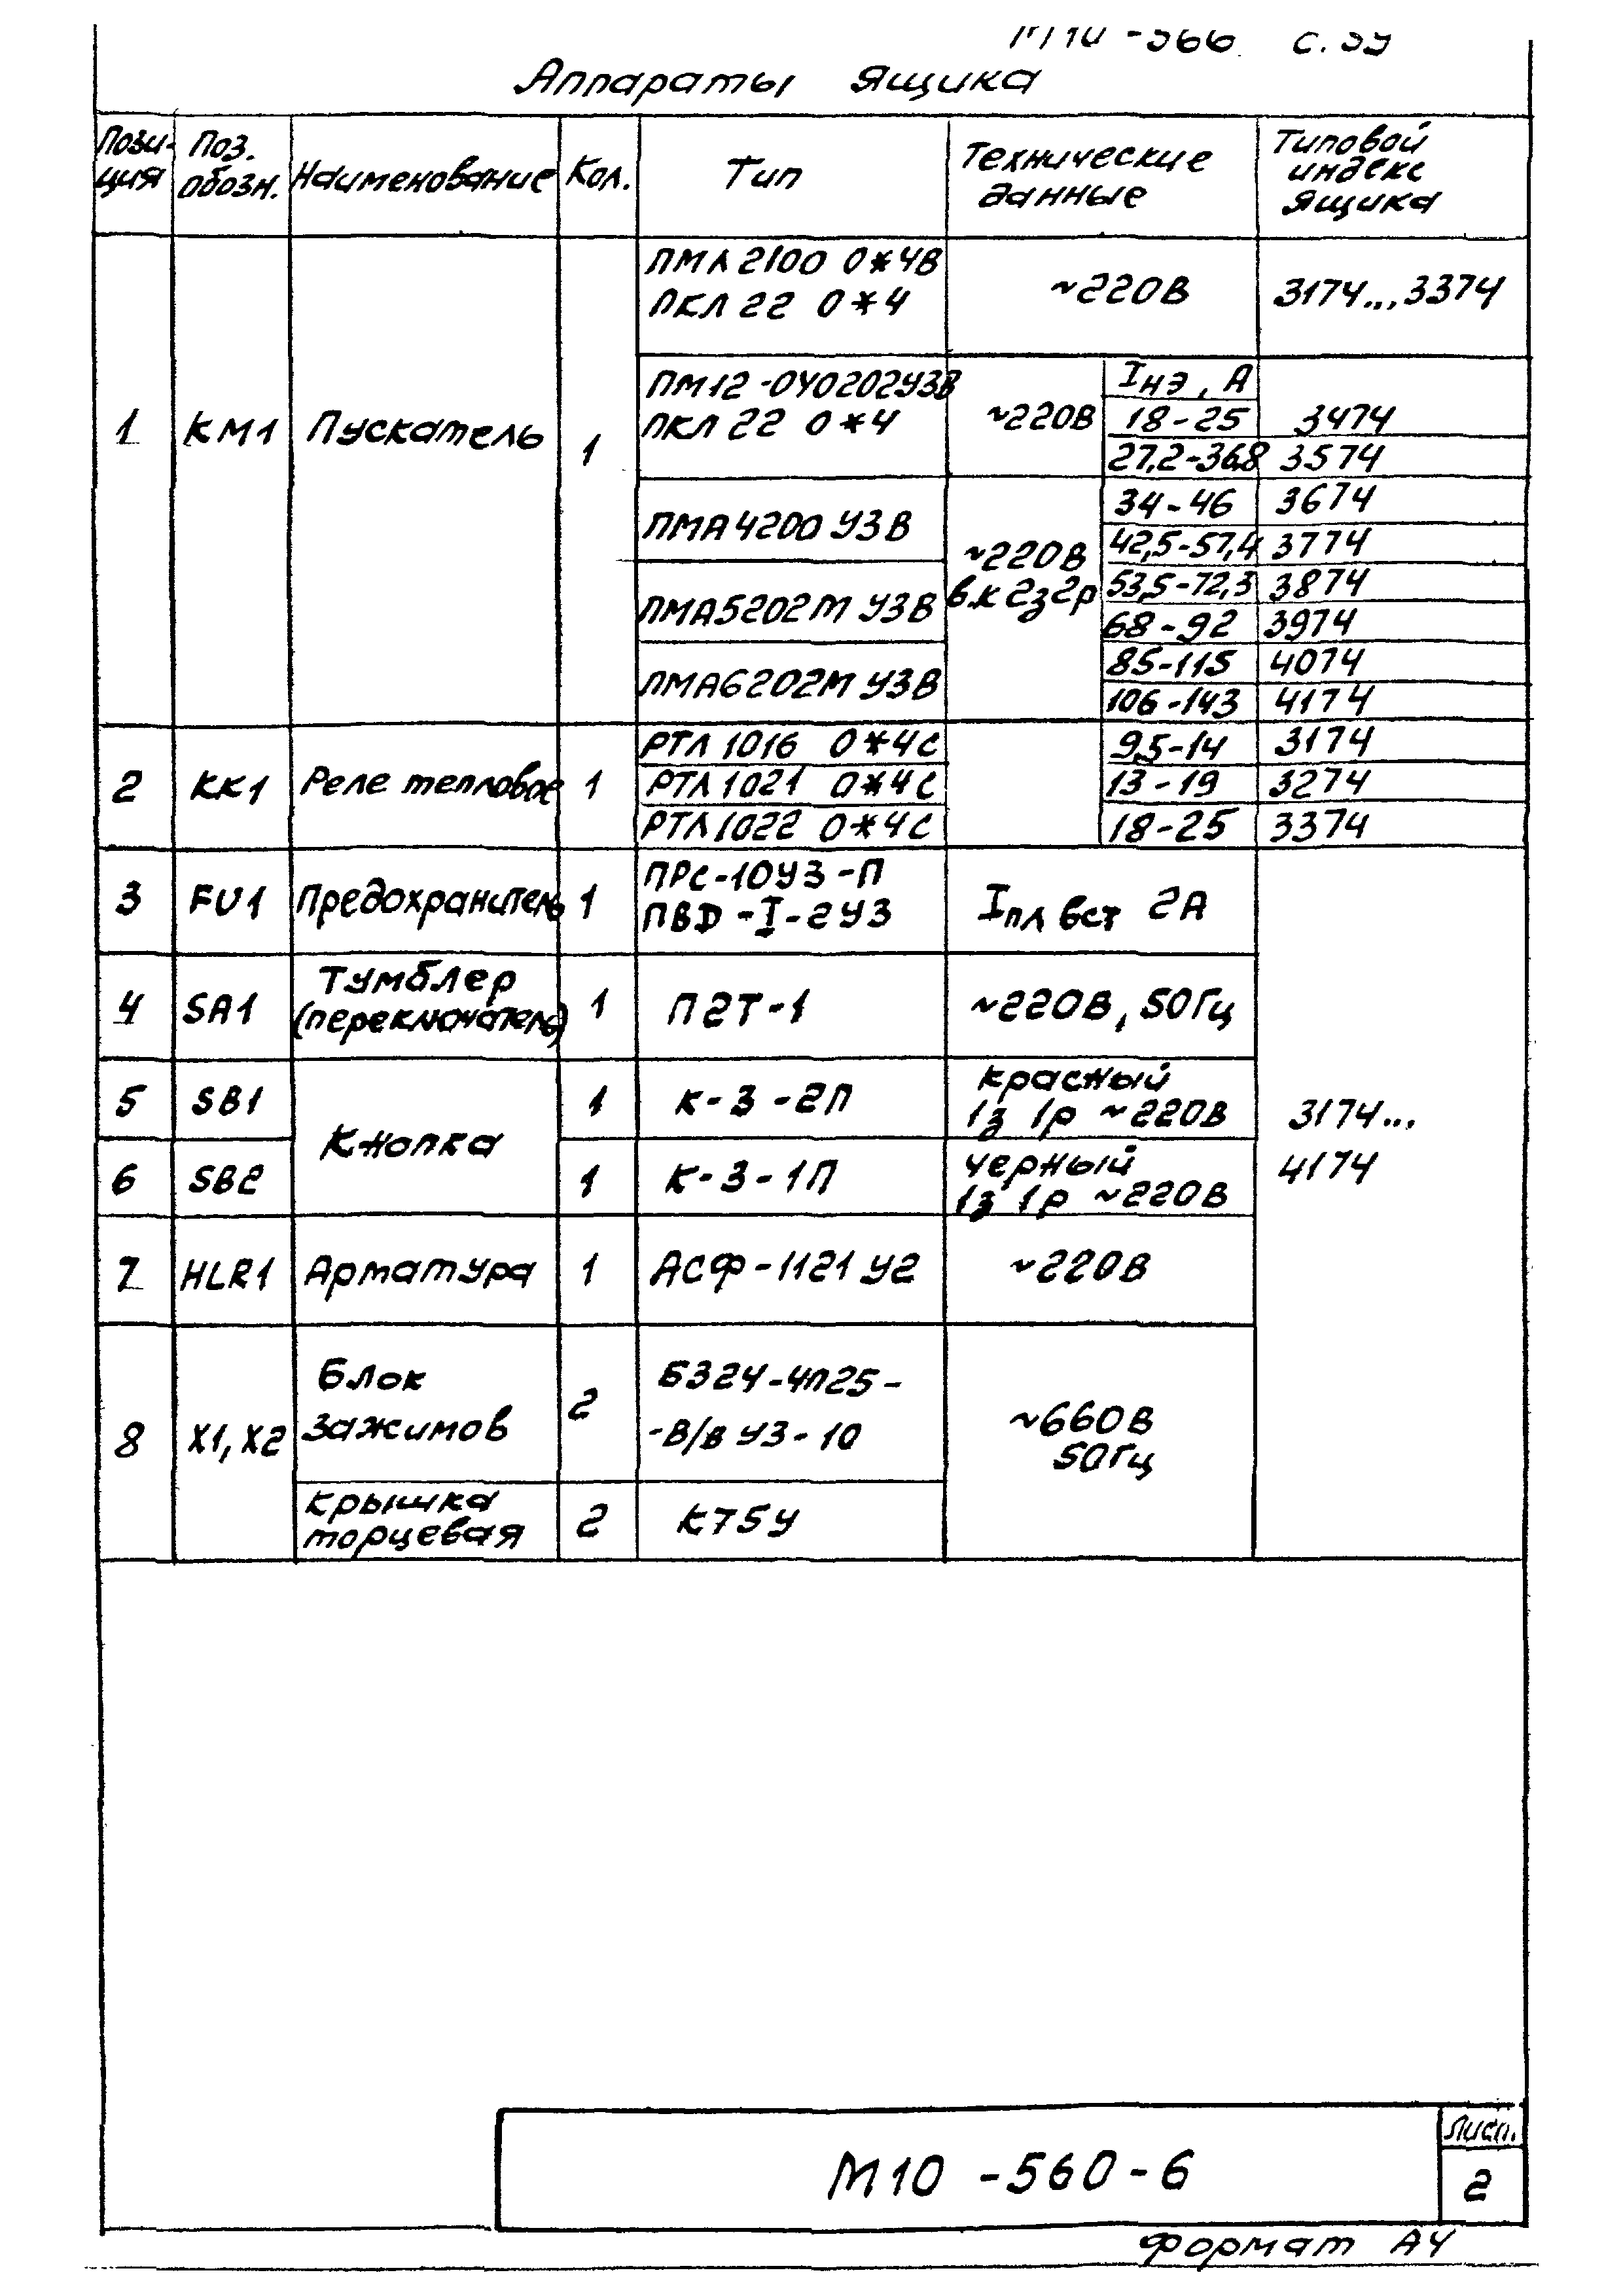 Аппараты ящика
Пози- ция
Поз. обозн.
Наименование
Кол.
Тип
Технические данные
Типовой индекс ящика
1 КМ1 Пускатель 1
ПМЛ 2100 О*4В
ПКЛ 22 О*4
~220В
3174...3374
ПМ12-040202У3В
ПКЛ 22 О*4
~220В
Iнэ, А
18-25 3474
27,2-36,8 3574
ПМА 4200 У3В
ПМА5202М У3В
ПМА6202М У3В
~220В
в.к 2з2р
34-46 3674
42,5-57,4 3774
53,5-72,3 3874
68-92 3974
85-115 4074
106-143 4174
2 КК1 Реле тепловое 1
РТЛ 1016 О*4С 9,5-14 3174
РТЛ 1021 О*4С 13-19 3274
РТЛ 1022 О*4С 18-25 3374
3 FU1 Предохранитель 1
ПРС-10У3-П
ПВD-I-2У3
Iпл вст 2А
4 SA1 Тумблер
(переключатель) 1 П2Т-1 ~220В, 50Гц
5 SB1 Кнопка 1 К-3-2П красный
1з 1р ~220В
6 SB2 1 К-3-1П черный
1з 1р ~220В
3174...
4174
7 HLR1 Арматура 1 АСФ-1121 У2 ~220В
8 Х1, Х2 Блок
зажимов 2
Б324-4П25-
-В/В У3-10
~660В
50Гц
Крышка
торцевая 2 К75У
М10-560-6
Лист.
2
Формат А4